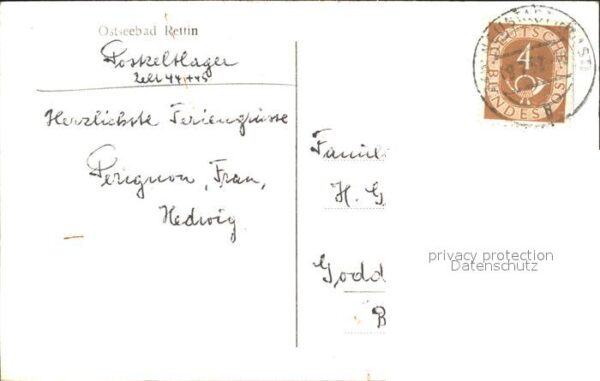 Ostseebad Rettin
Zelt 44+45
Herzlichste Feriengrüsse
Perignon, Frau,
Hedwig
Famil
H. G
Godd
B
DEUTSCHE
BUNDESPOST
4
privacy protection
Datenschutz